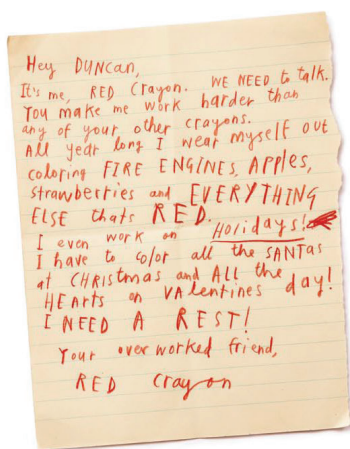 Hey DUNCAN,
It's me, RED Crayon. WE NEED to talk.
You make me work harder than
any of your other crayons.
All year long I wear myself out
coloring FIRE ENGINES, APPles,
strawberries and EVERYTHING
ELSE thats RED.
I even work on Holidays!
I have to color all the SANTAs
at CHRistmas and ALL the
HEArts on VAlentines day!
I NEED A REST!
Your overworked friend,
RED crayon